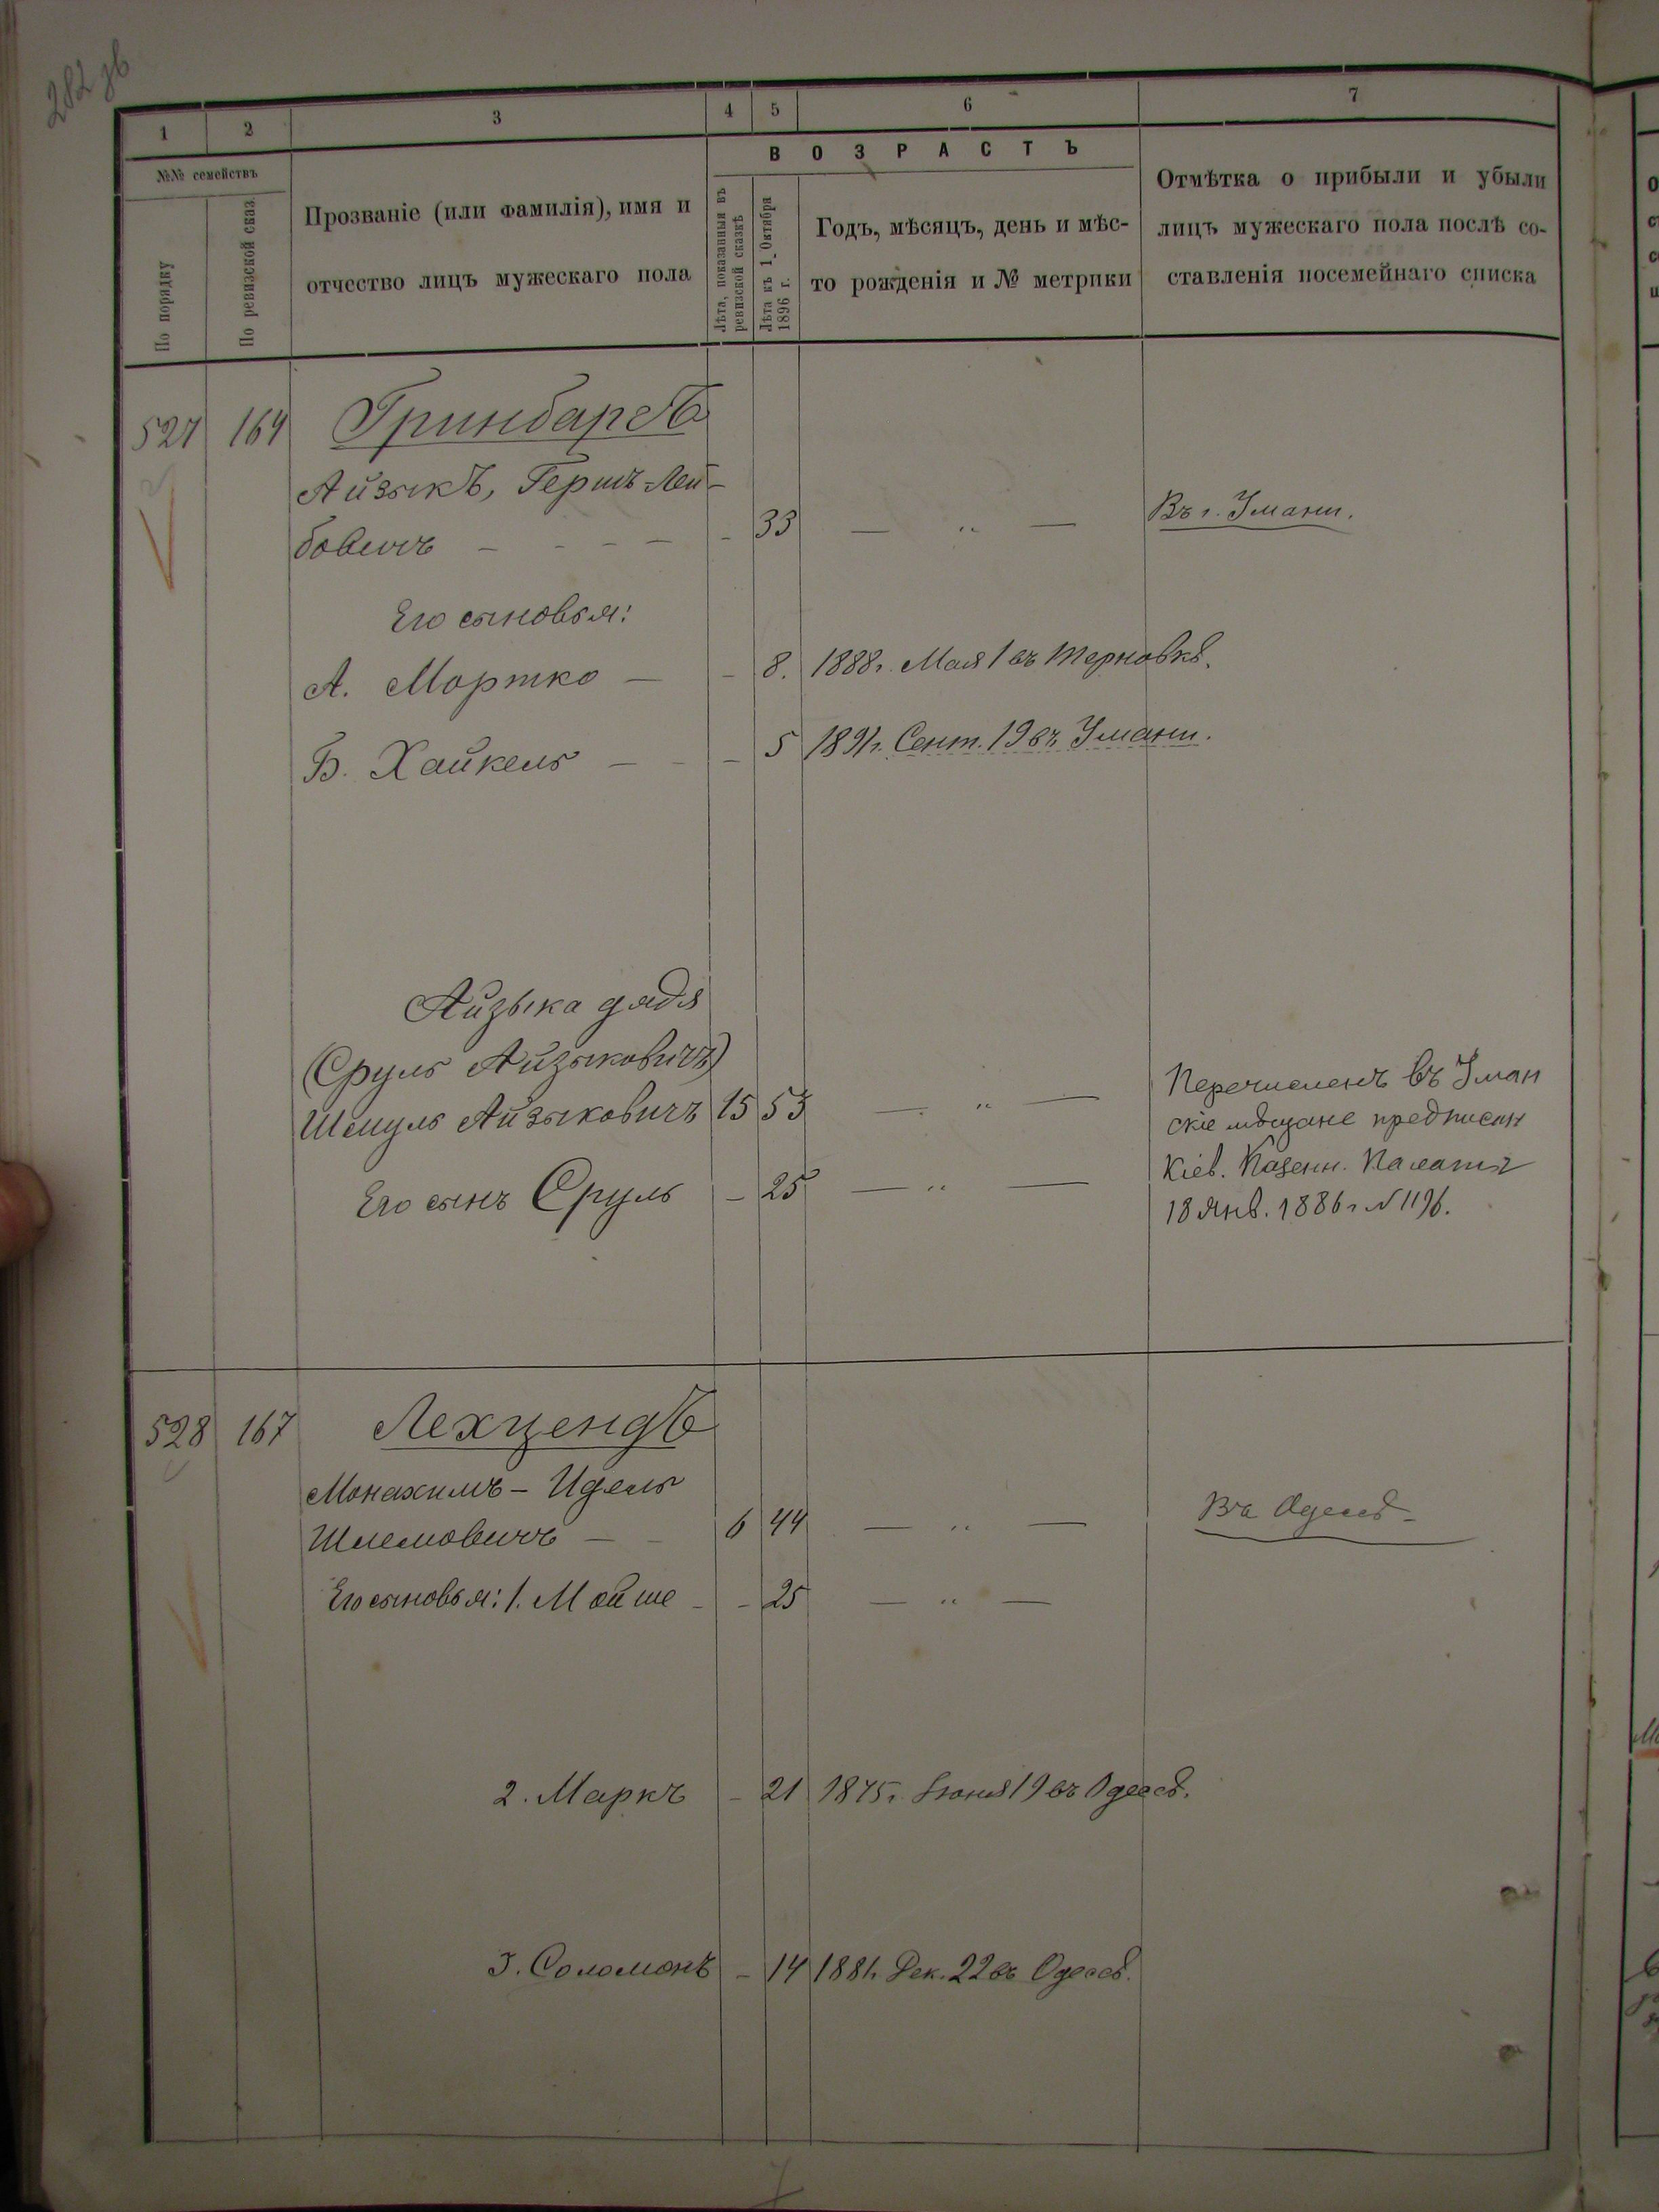 282 зв
1 2 3 4 5 6 7
№№ семействъ
По порядку
По ревизской сказ.
Прозваніе (или фамилія), имя и
отчество лицъ мужескаго пола
ВОЗРАСТЪ
Лѣта, показанныя въ
ревизской сказкѣ
Лѣта къ 1 Октября
1896 г.
Годъ, мѣсяцъ, день и мѣс-
то рожденія и № метрики
Отмѣтка о прибыли и убыли
лицъ мужескаго пола послѣ со-
ставленія посемейнаго списка
527 164 Гринбаргъ
Айзыкъ, Гершъ-Лей-
бовичъ - - - - - 33 — „ — Въ г. Умани.
Его сыновья:
А. Мортко — - 8. 1888 г. Мая 1 въ Терновкѣ.
Б. Хайкель — - - 5 1891 г. Сент. 19 въ Умани.
Айзыка дядя
(Сруль Айзыковичъ)
Шмуль Айзыковичъ 15 53 — „ — Перечисленъ въ Уман
скіе мѣщане предписан
Кіев. Казенн. Палаты
Его сынъ Сруль - 25 — „ —
18 Янв. 1886 г. № 1196.
528 167 Лехцендъ
Монахимъ - Идель
Шлемовичъ — - 6 44 — „ — Въ Одессѣ -
Его сыновья: 1. Мойше - - 25 — „ —
2. Маркъ - 21 1875 г. Іюня 19 въ Одессѣ.
3. Соломонъ - 14 1881 г. Дек. 22 въ Одессѣ.